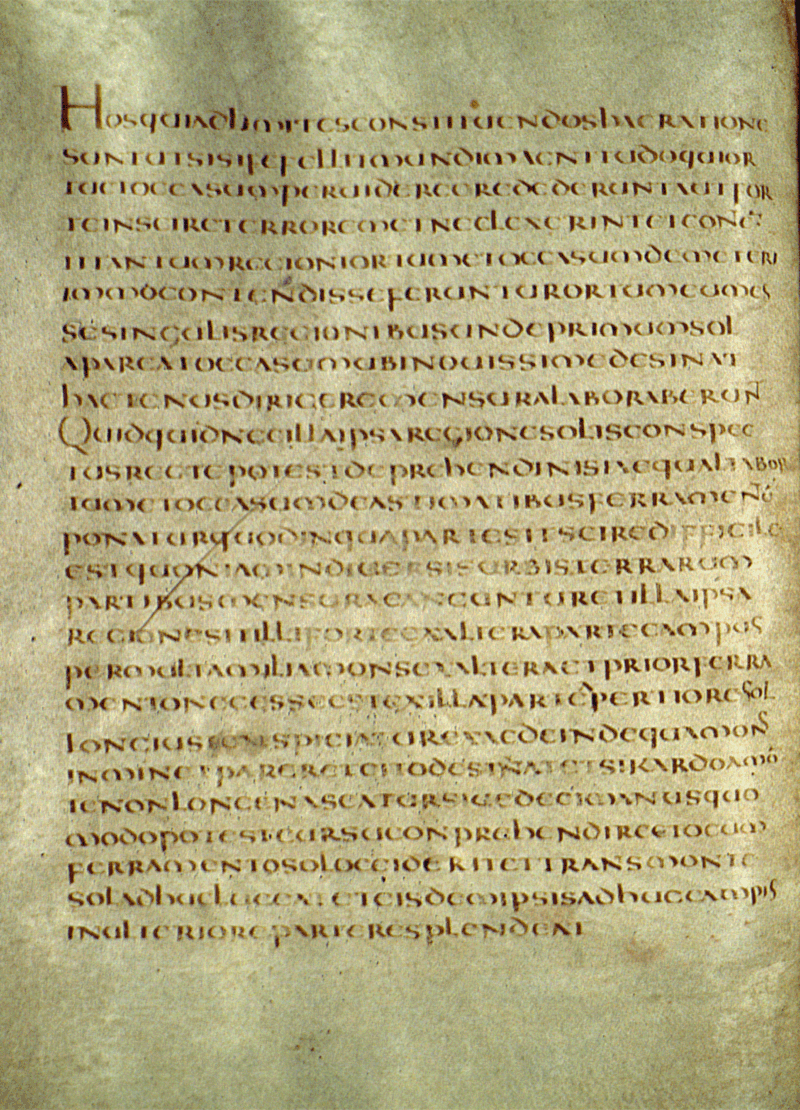 HOSQUIADLIMITESCONSTITUENDOSHACRATIONE
SUNTUISISIFEFELLITMUNDIMAGNITUDOQUIOR
TUMETOCCASUMPERUIDERECREDEDERUNTAUTFOR
TEINSCIREETERROREMETNEGLEXERINTETCONTE
TITANTUMREGIONIORTUMETOCCASUMDEMETERI
IMMOCONTENDISSEFERUNTURORTUMEUMES
SESINGULISREGIONIBUSUNDEPRIMUMSOL
APAREATOCCASUMUBINOUISSIMEDESINAT
HACTENUSDIRIGEREMENSURALABORABERUN
QUIDQUIDNEILLAIPSAREGIONESOLISCONSPEC
TUSRECTEPOTESTDEPREHENDINISIAEQUALITABOR
TUMETOCCASUMDEASTIMATIBUSFERRAMENTO
PONATURQUODNUNQUAPARTESITSCIREDIFFICILE
ESTQUONIAM TERRARUM
PARTIBUSMENSURAE CUNTUREILLAIPSA
REGIONESITILLI EXALTERAPARTECAMPUS
PERMULTAMILIAMONSEXALTERAETPRIORFERRA
MENTONECESSEESTEXILLAPARTEPERTIORESOL
LONGIUSCONSPICIATUREAEDEINDEQUAMONS
INMINETPARERETEMODESINATETSIKARDOAMON
TENONLONGENASCATURSIUEDECIMANUSQUO
MODOPOTESTCURSUCONPREHENDIRECTOCUM
FERRAMENTOSOLOCCIDERITETTRANSMONTE
SOLADHUCLUCEATETEISDEMIPSISADHUCCAMPIS
INULTERIOREPARTERESPLENDEAT